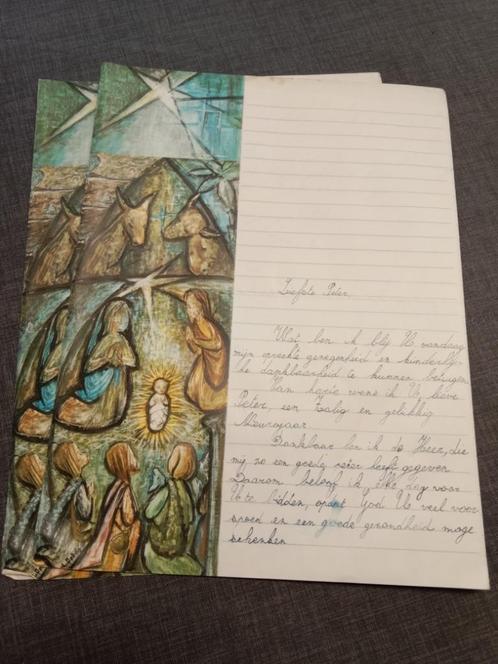 Liefste Peter,
Wat ben ik blij U vandaag
mijn oprechte genegenheid en kinderlij-
ke dankbaarheid te kunnen betuigen.
Van harte wens ik U, lieve
Peter, een Zalig en gelukkig
Nieuwjaar.
Dankbaar ben ik de Heer, die
mij zo een goede peter heeft gegeven.
Daarom beloof ik, elke dag voor
U te bidden, opdat God U veel voor-
spoed en een goede gezondheid moge
schenken